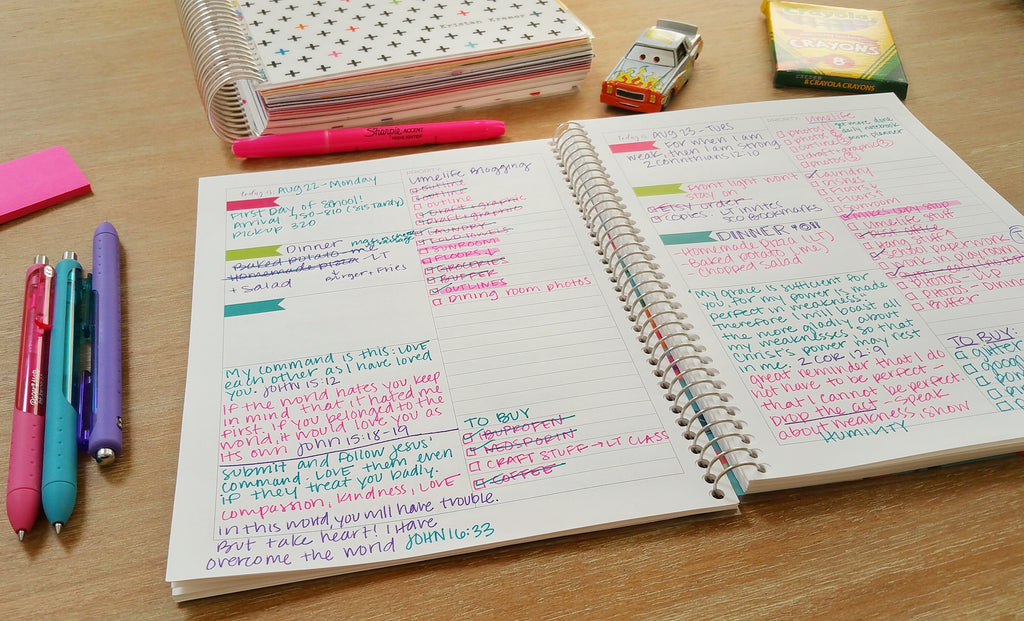 Kristen Kramer
Sharpie ACCENT
HIGHLIGHTER
Crayola
CRAYONS
8
8 CRAYOLA CRAYONS
today is AUG 22 - Monday
First Day of School!
Arrival 750-810 (815 Tardy)
Pickup 320
Dinner
Baked potato
Homemade pizza - LT
+ salad
Burger + Fries
My command is this: LOVE
each other as I have loved
you. John 15:12
If the world hates you keep
in mind that it hated me
first. If you belonged to the
world, it would love you as
its own John 15:18-19
Submit and follow Jesus'
command. LOVE them even
if they treat you badly.
compassion, kindness, LOVE
in this world, you will have trouble.
But take heart! I have
overcome the world JOHN 16:33
Limelife Blogging
outline
outline
outline
Draft + graphic
Draft + graphic
LAUNDRY
FOLD TOWELS
SUNROOM
FLOORS
GROCERIES
BUFFER
OUTLINES
Dining room photos
TO BUY
IBUPROFEN
NEOSPORIN
CRAFT STUFF → LT CLASS
COFFEE
today is AUG 23 - TUES
For when I am
weak, then I am strong
2 Corinthians 12:10
Front light won't
stay on
Etsy order
copies: LT invites
30 Bookmarks
DINNER
Homemade Pizza (LT)
Baked potato
chopped salad
My grace is sufficient for
you, for my power is made
perfect in weakness"
Therefore I will boast all
the more gladly about
my weaknesses, so that
Christ's power may rest
in me. 2 COR 12:9
great reminder that I do
not have to be perfect -
that I cannot be perfect.
Drop the act. Speak
about weakness, show
HUMILITY
Limelife
get more done
daily notebook
Laundry
floors
sunroom
Limelife stuff
Limelife
send
School paperwork
link in playroom
PHOTOS
PHOTOS - LLP
PHOTOS - Dining
Buffer
TO BUY:
glitter